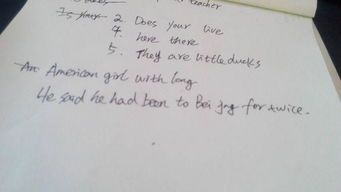 teacher
Is your 2. Does your live
4. here there
5. They are little ducks
An American girl with long
He said he had been to Bei jng for twice.